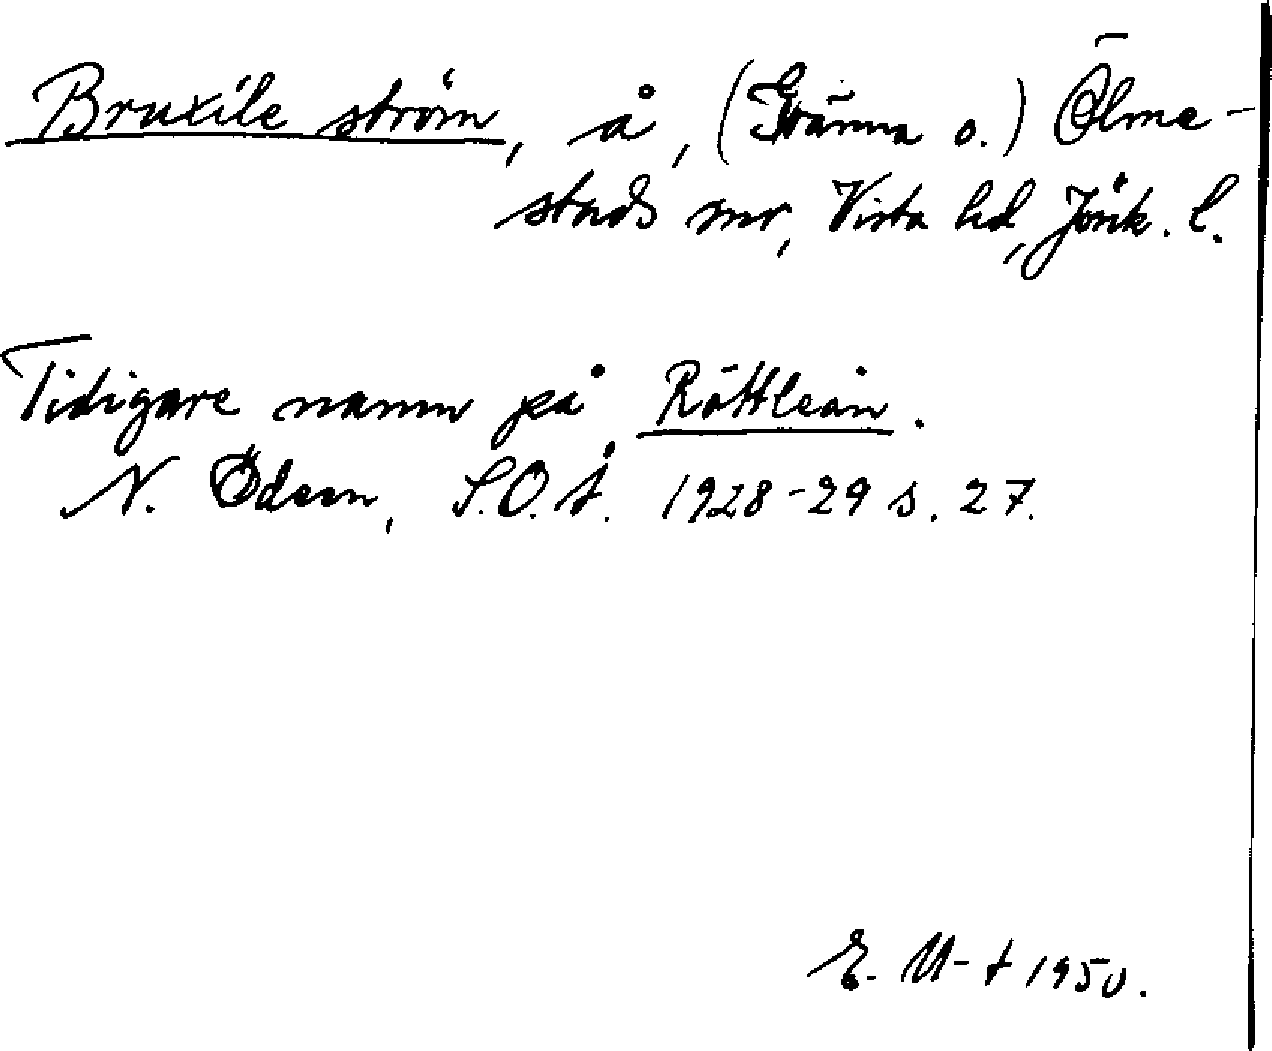 Bruxile ström, å, (Gränna o.) Ölme-
stads snr, Vista hd, Jönk. l.
Tidigare namn på Röttleån.
N. Ödeen, S.O.Å. 1928-29 s. 27.
E. M-t 1950.